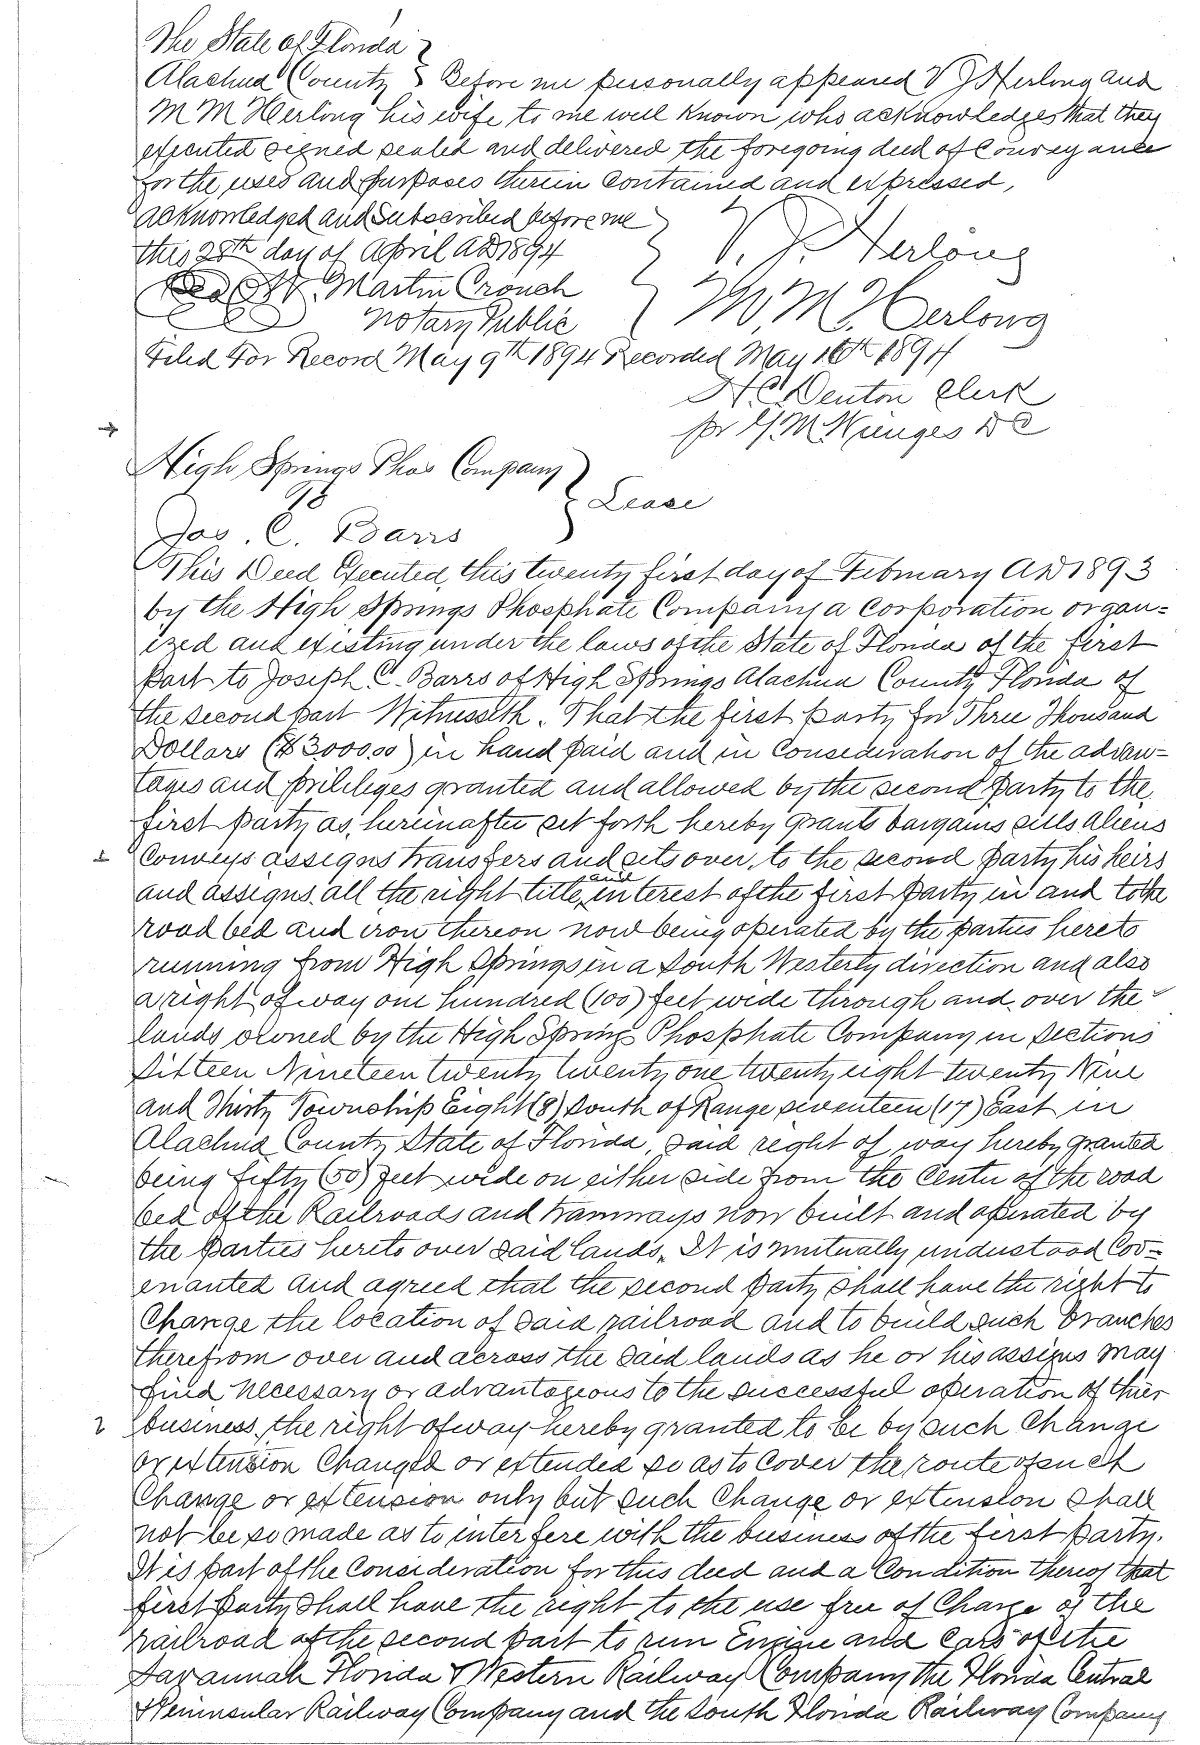 The State of Florida }
Alachua County } Before me personally appeared V J Herlong and
M M Herlong his wife to me well known who acknowledges that they
executed signed sealed and delivered the foregoing deed of Conveyance
for the uses and purposes therein contained and expressed,
acknowledged and subscribed before me }
this 28th day of April AD 1894 } V. J. Herlong
W. Martin Crouch } M. M. Herlong
Notary Public
Filed For Record May 9th 1894 Recorded May 16th 1894
H. C. Denton Clerk
pr G. M. Wienges DC
High Springs Phos Company }
To } Lease
Jas. C. Barrs }
This Deed Executed this twenty first day of February AD 1893
by the High Springs Phosphate Company a corporation organ=
ized and existing under the laws of the State of Florida of the first
part to Joseph C. Barrs of High Springs Alachua County Florida of
the second part Witnesseth. That the first party for Three Thousand
Dollars ($3000.00) in hand paid and in consideration of the advan=
tages and prilileges granted and allowed by the second party to the
first party as hereinafter set forth hereby grants bargains sells aliens
Conveys assigns transfers and sets over to the second party his heirs
and assigns all the right title and interest of the first party in and to the
road bed and iron thereon now being operated by the parties hereto
running from High Springs in a South Westerly direction and also
a right of way one hundred (100) feet wide through and over the
lands owned by the High Springs Phosphate Company in Sections
Sixteen Nineteen twenty twenty one twenty eight twenty Nine
and Thirty Township Eight (8) South of Range seventeen (17) East in
Alachua County State of Florida, said right of way hereby granted
being fifty (50) feet wide on either side from the center of the road
bed of the Railroads and tramways now built and operated by
the parties hereto over said lands. It is mutually understood Cov=
enanted and agreed that the second party shall have the right to
Change the location of said railroad and to build such branches
therefrom over and across the said lands as he or his assigns may
find necessary or advantageous to the successful operation of thier
business, the right of way hereby granted to be by such Change
or extension Changed or extended so as to cover the route of such
Change or extension only but such Change or extension shall
not be so made as to interfere with the business of the first party.
It is part of the Consideration for this deed and a Condition thereof that
first party shall have the right to the use free of Charge of the
railroad of the second part to run Engine and Cars of the
Savannah Florida & Western Railway Company the Florida Central
& Peninsular Railway Company and the South Florida Railway Company